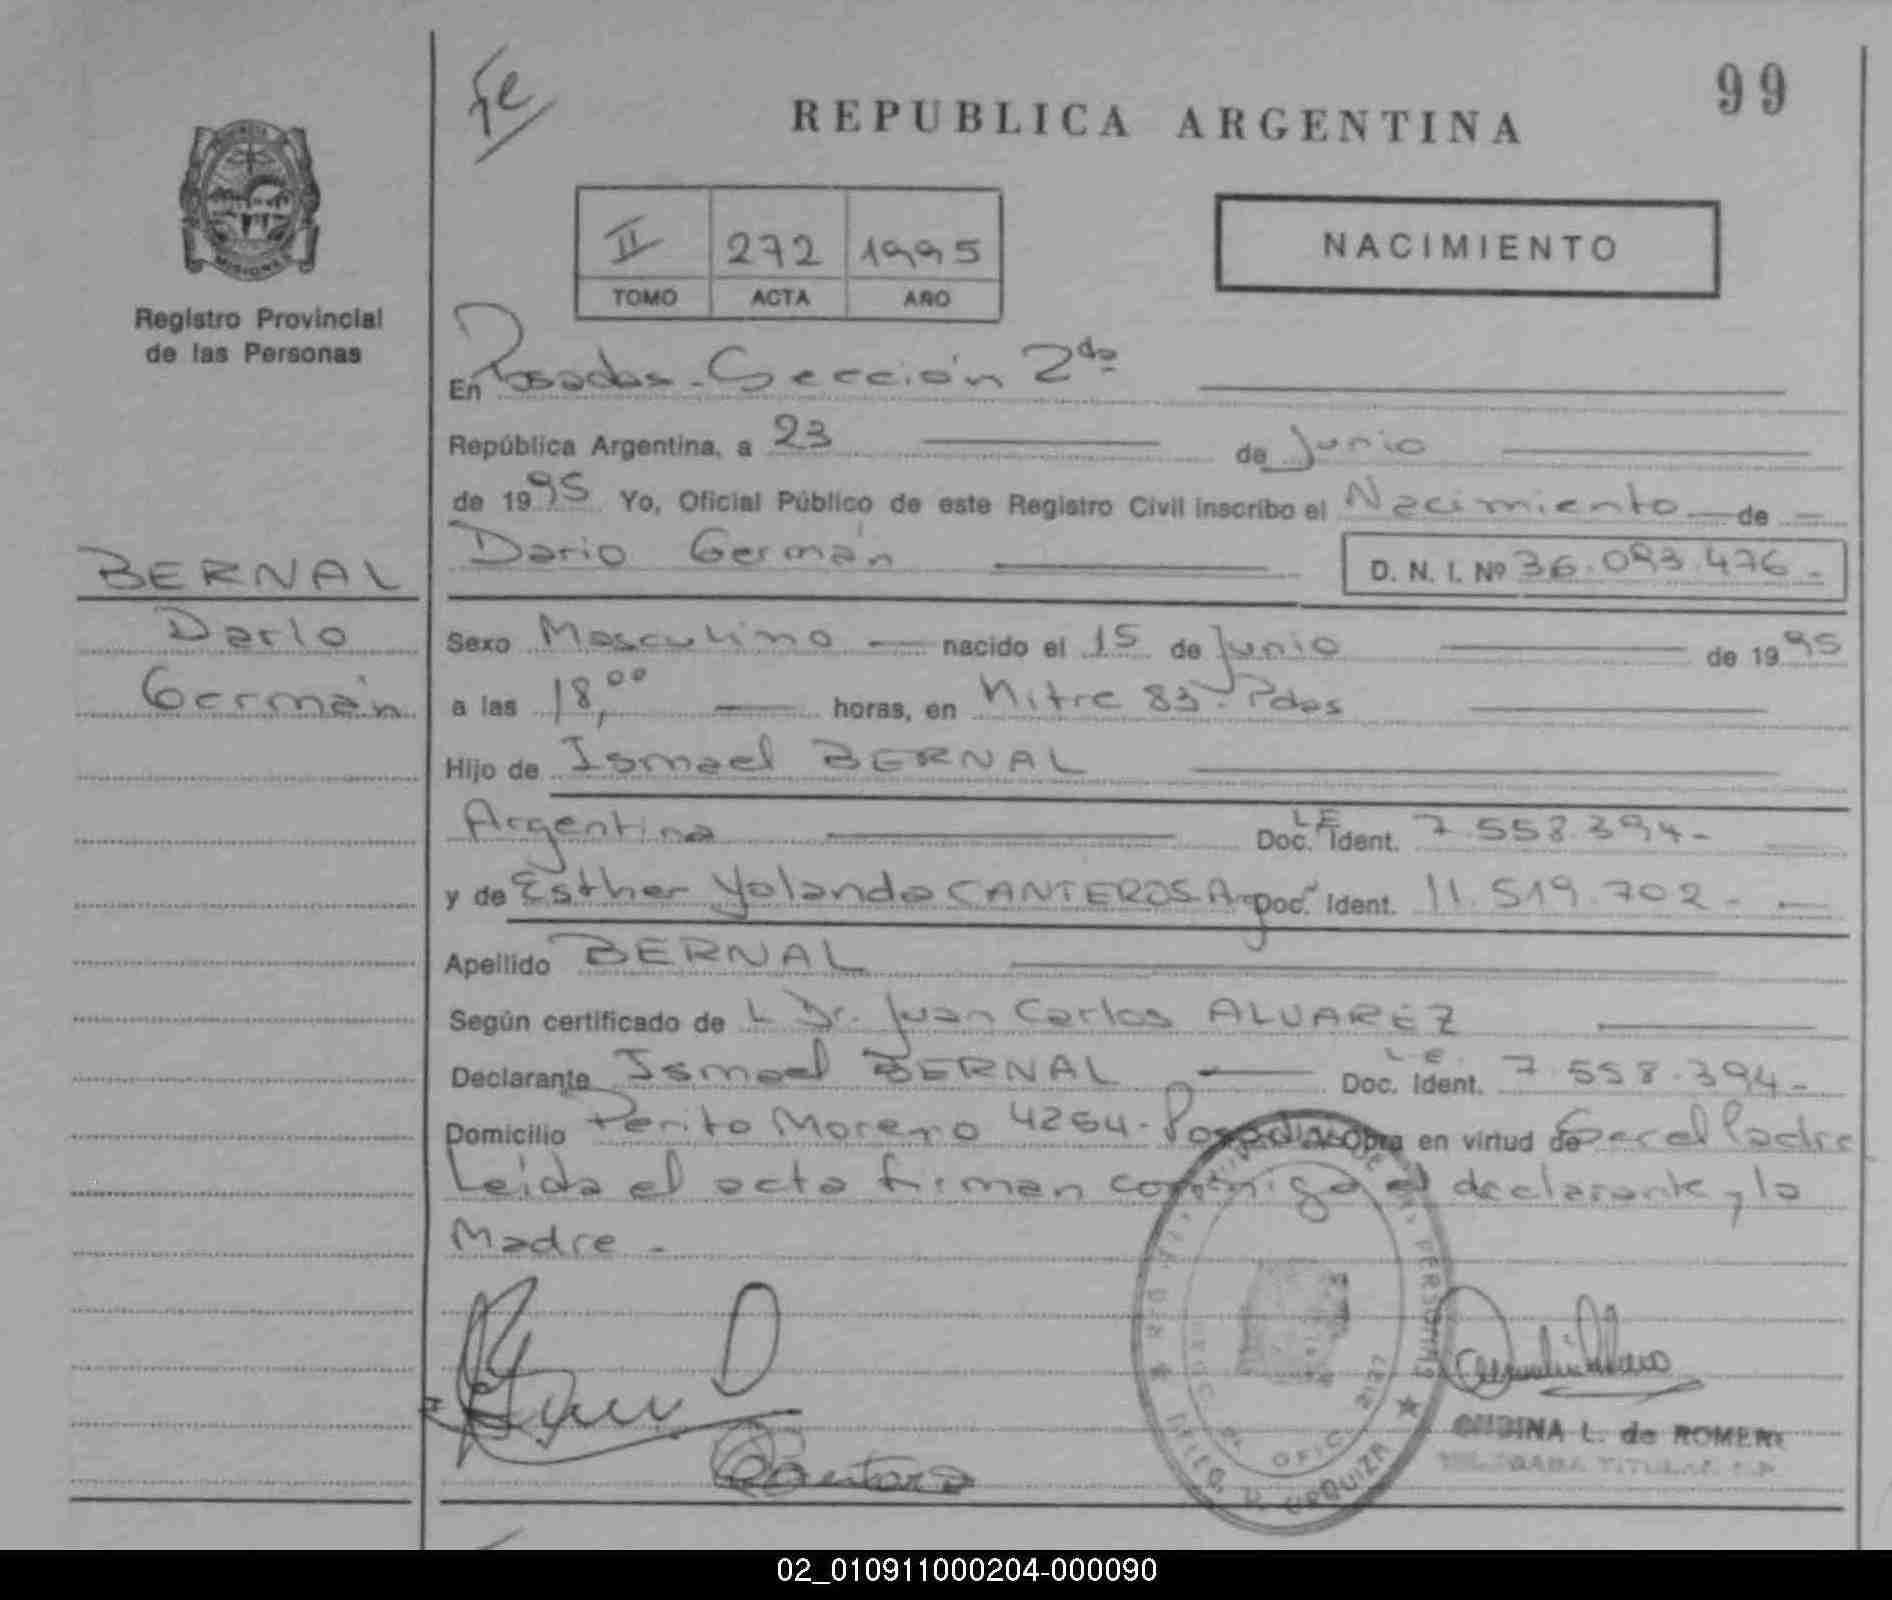 Fe
99
REPUBLICA ARGENTINA
II 272 1995
TOMO ACTA AÑO
NACIMIENTO
MISIONES
Registro Provincial
de las Personas
En Posadas - Sección 2da
República Argentina, a 23 de Junio
de 1995 Yo, Oficial Público de este Registro Civil inscribo el Nacimiento de
Dario Germán D. N. I. Nº 36.093.476-
BERNAL
Dario
Germán
Sexo Masculino nacido el 15 de Junio de 1995
a las 18,00 horas, en Mitre 83 - Pdas
Hijo de Ismael BERNAL
Argentina L E Doc. Ident. 7.558.394-
y de Esther Yolanda CANTEROS Arg Doc. Ident. 11.519.702-
Apellido BERNAL
Según certificado de L Dr. Juan Carlos ALVAREZ
Declarante Ismael BERNAL L.E. Doc. Ident. 7.558.394-
Domicilio Perito Moreno 4264 - Posadas Obra en virtud de Ser el Padre
Leida el acta firman conmigo el declarante y la
Madre -
OFIC. 2127
URQUIZA
L. de ROMERO
02_010911000204-000090